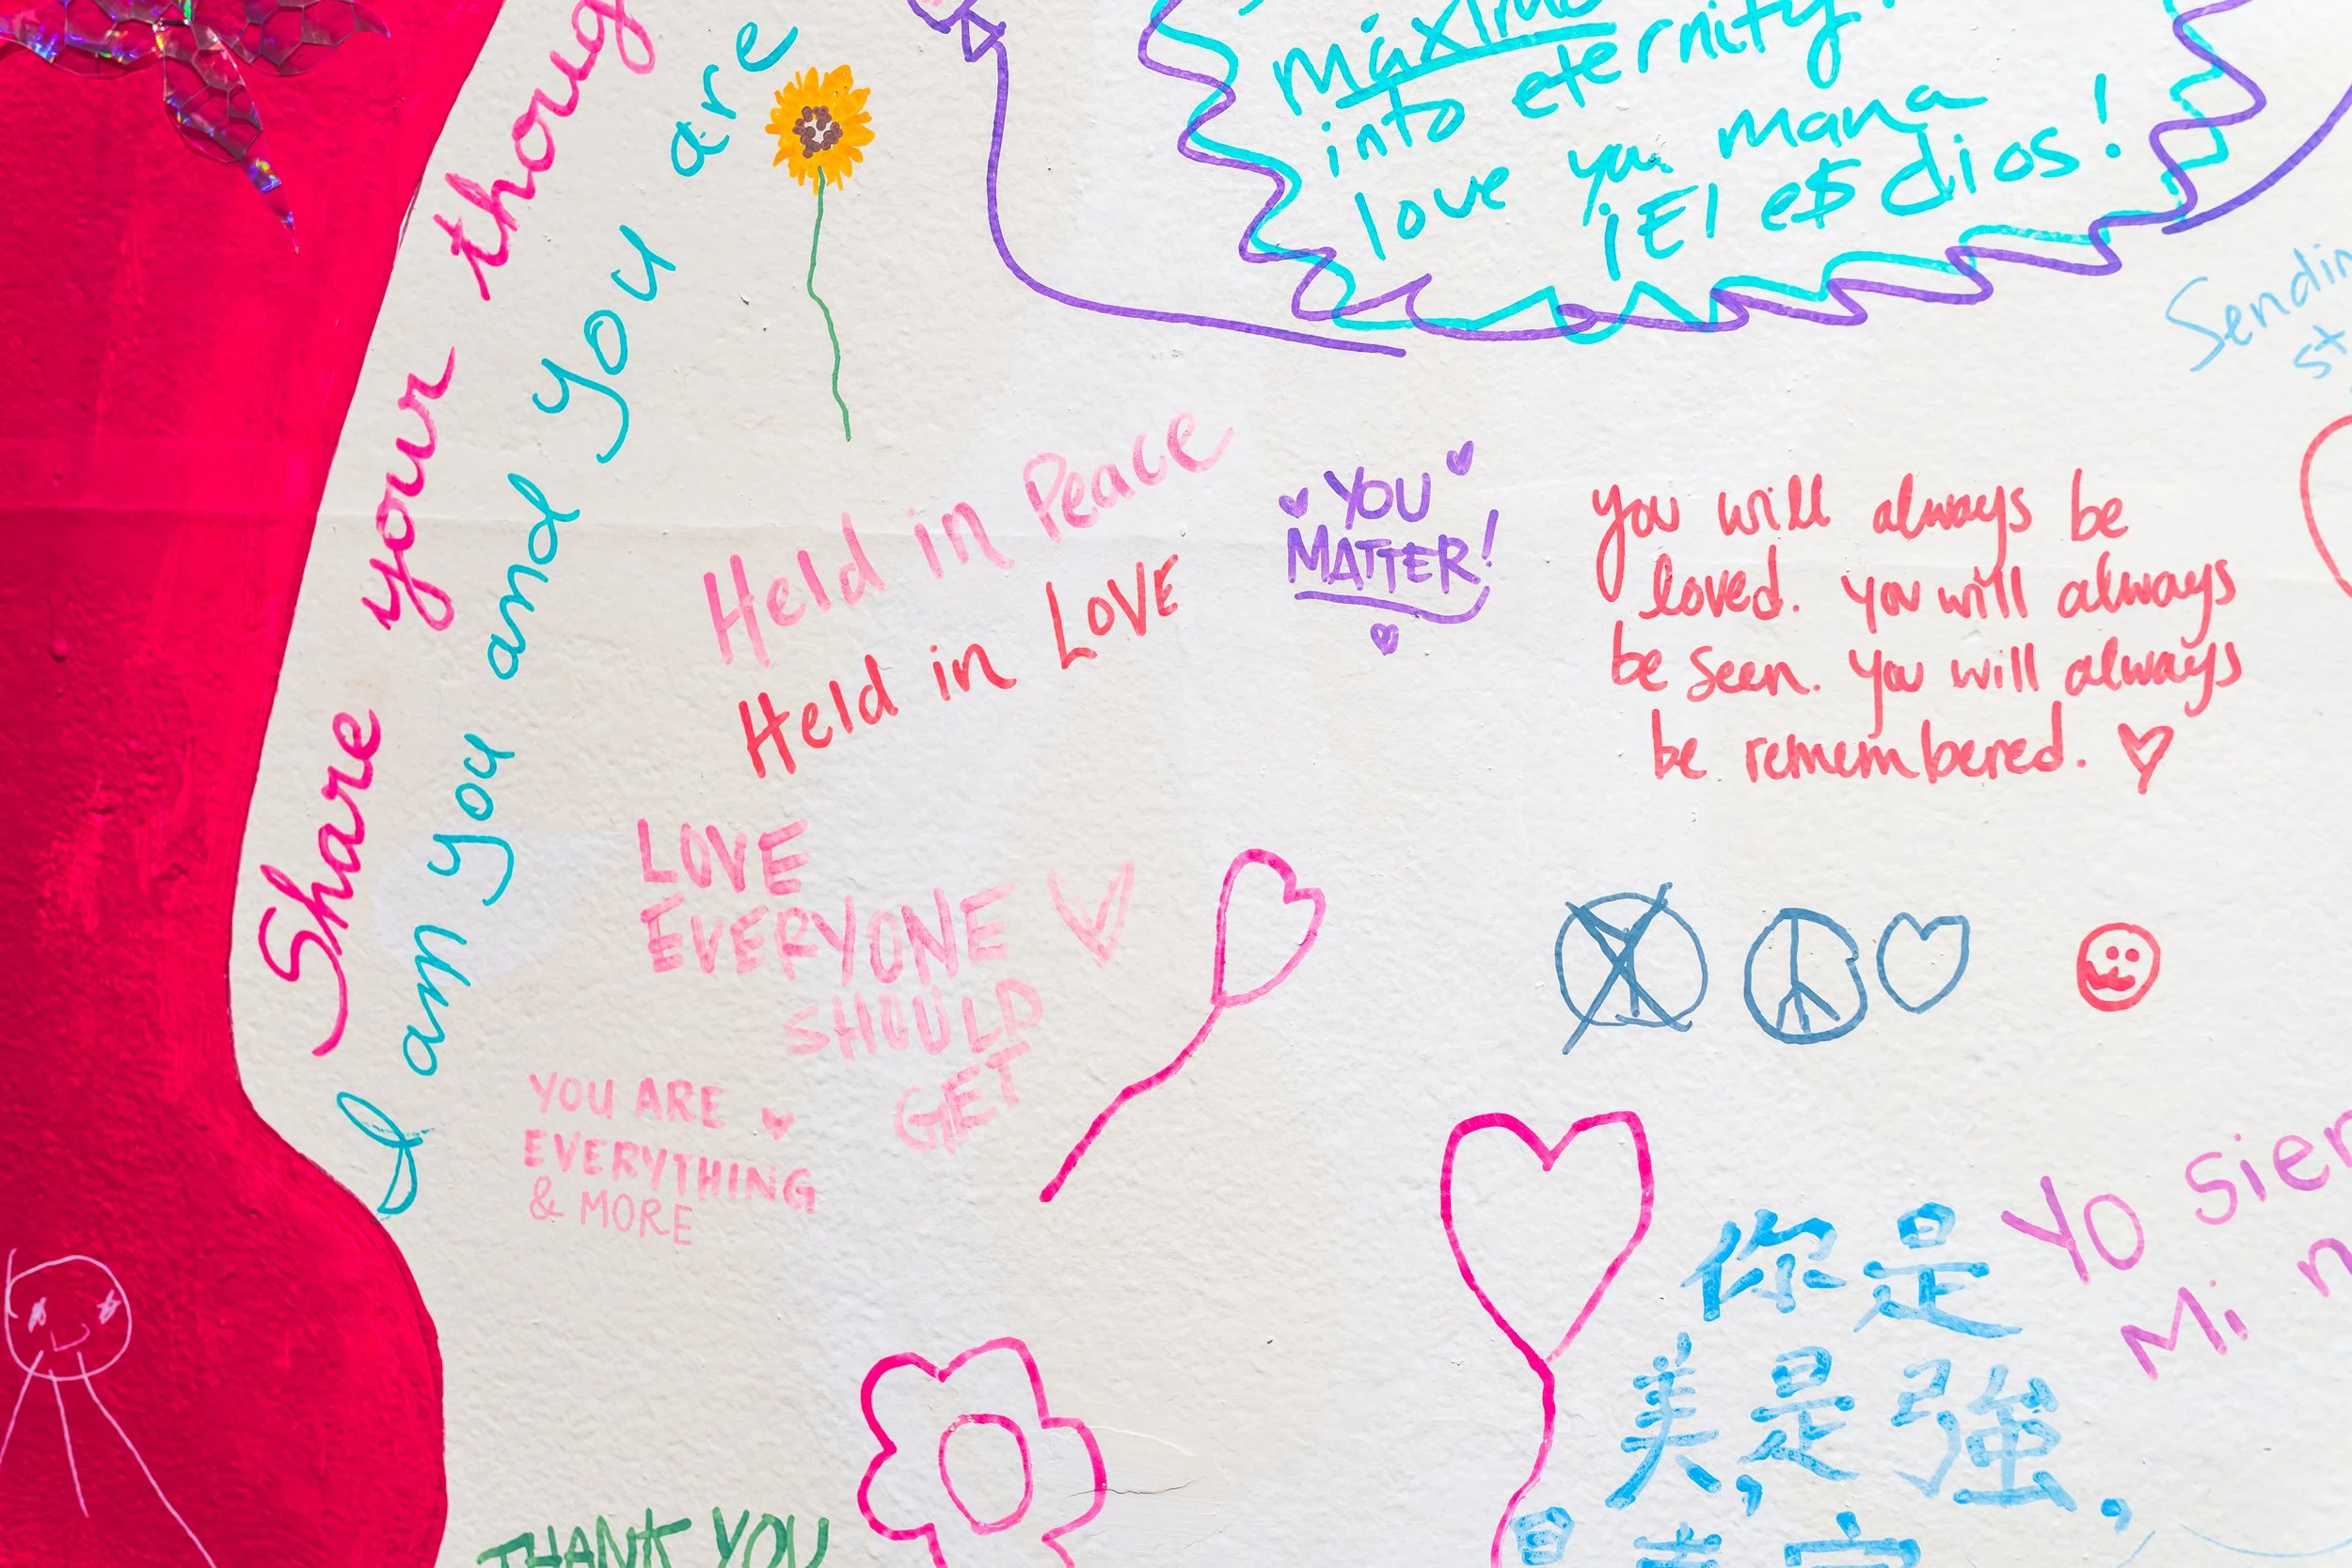 Share your thoug
I am you and you are
máximo
into eternity!
love you mana
¡El e$ dios!
Sendin
st
Held in Peace
Held in LOVE
YOU
MATTER!
you will always be
loved. you will always
be seen. you will always
be remembered.
LOVE
EVERYONE
SHOULD
GET
YOU ARE
EVERYTHING
& MORE
Yo sier
Mi n
你是
美,是強,
THANK YOU